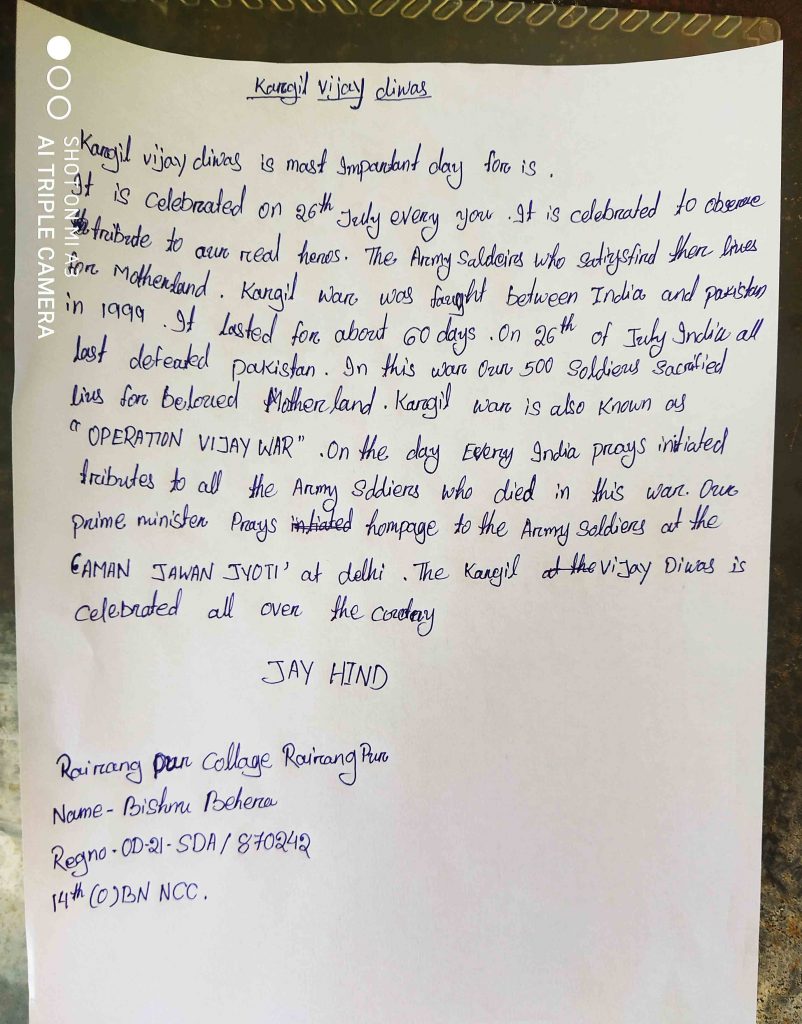 Kargil vijay diwas
Kargil vijay diwas is most Impontant day for is .
It is celebrated on 26th July every you . It is celebrated to observe
tribute to our real heros. The Army Saldeirs who satiysfind there lives
for Motherland . Kargil war was faught between India and pakistan
in 1999 . It lasted for about 60 days . On 26th of July India all
last defeated pakistan . In this war Our 500 Soldiers Sacrified
lius for beloved Mother land . Kargil war is also Known as
"OPERATION VIJAY WAR" . On the day Every India prays initiated
tributes to all the Army Soldiers who died in this war. Our
prime minister Prays intiated hompage to the Army Soldiers at the
'AMAN JAWAN JYOTI' at delhi . The Kargil at the Vijay Diwas is
celebrated all over the
JAY HIND
Rairang pur Collage Rairang Pur
Name - Bishnu Behera
Regno - OD-21-SDA / 870242
14th (O) BN NCC .
SHOT ON MI A3
AI TRIPLE CAMERA